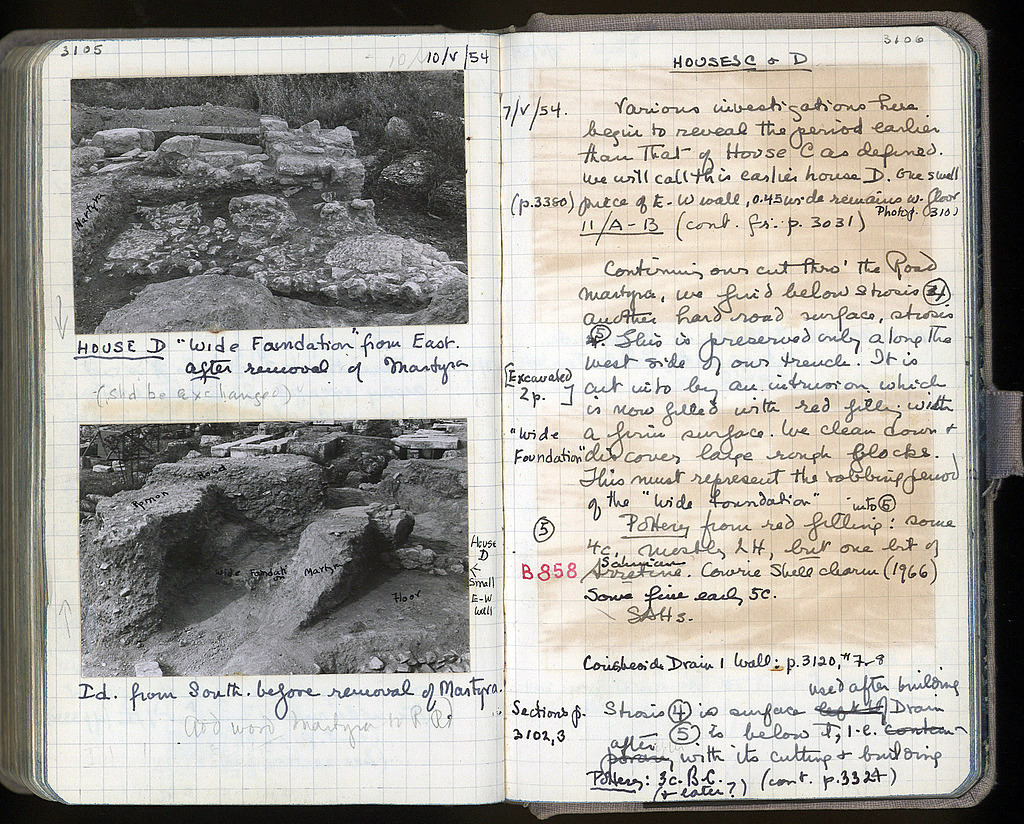 3105
10/V/54
Martyra
HOUSE D "Wide Foundation" from East.
after removal of Martyra
(shd be exchanged)
Roman Road
Wide Foundation Martyra
Floor
House
D
←
Small
E-W
Wall
Id. from South. before removal of Martyra.
add word Martyra to
3106
HOUSES C & D
7/V/54. Various investigations here
begin to reveal the period earlier
than that of House C as defined.
We will call this earlier house D. One small
(p.3380) piece of E-W wall, 0.45 wide remains w. floor
Photo p. 3101
11/A-B (cont. fr. p. 3031)
Continuing our cut thro' the Road
martyra, we find below strosis 4
another hard road surface, strosis
5. This is preserved only along the
west side of our trench. It is
[Excavated
2 p. ]
cut into by an intrusion which
is now filled with red filling with
"Wide
Foundation"
a firm surface. We clean down &
discover large rough blocks.
This must represent the robbing period
of the "Wide Foundation" into 5
5 Pottery from red filling: some
4c, mostly LH, but one bit of
Samian
B858 Arretine. Cowrie Shell charm (1966)
Some fine early 5c.
SAHs.
Drain 1 Wall: p.3120, #7-8
used after building
Sections p.
3102,3
Strosis 4 is surface Drain
5 is below it, i.e. contem-
after
with its cutting & building
Pottery: 3c. B.C. (cont. p.3324)
(& later?)